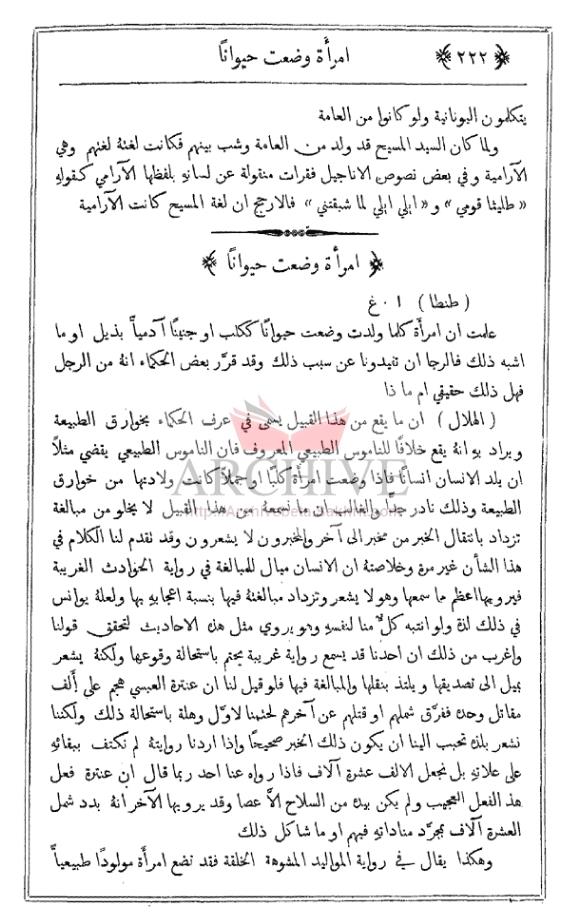 ﴿ ٢٢٢ ﴾ امرأة وضعت حيوانًا
يتكلمون اليونانية ولو كانوا من العامة
ولما كان السيد المسيح قد ولد من العامة وشب بينهم فكانت لغتهُ لغتهم وهي
الآرامية وفي بعض نصوص الاناجيل فقرات منقولة عن لسانهِ بلفظها الآرامي كقولهِ
« طليثا قومي » و « ايلي ايلي لما شبقتني » فالارجح ان لغة المسيح كانت الآرامية
﴿ امرأة وضعت حيوانًا ﴾
( طنطا ) ا ٠ غ
علمت ان امرأة كلما ولدت وضعت حيوانًا ككلب او جنينًا آدمياً بذيل او ما
اشبه ذلك فالرجا ان تفيدونا عن سبب ذلك وقد قرَّر بعض الحكماء انهُ من الرجل
فهل ذلك حقيقي ام ما ذا
( الهلال ) ان ما يقع من هذا القبيل يسمى في عرف الحكماء بخوارق الطبيعة
ويراد بهِ انهُ يقع خلافًا للناموس الطبيعي المعروف فان الناموس الطبيعي يقضي مثلاً
ان يلد الانسان انسانًا فاذا وضعت امرأة كلبًا او جملاً كانت ولادتها من خوارق
الطبيعة وذلك نادر جدا والغالب ان ما نسمعهُ من هذا القبيل لا يخلو من مبالغة
ARCHIVE
تزداد بانتقال الخبر من مخبر الى آخر والمخبرون لا يشعرون وقد تقدم لنا الكلام في
هذا الشأن غير مرة وخلاصتهُ ان الانسان ميال للمبالغة في رواية الحوادث الغريبة
فيرويها اعظم ما سمعها وهو لا يشعر وتزداد مبالغتهُ فيها بنسبة اعجابهِ بها ولعلهُ يوانس
في ذلك لذة ولو انتبه كلٌّ منا لنفسهِ وهو يروي مثل هذه الاحاديث لتحقق قولنا
واغرب من ذلك ان احدنا قد يسمع رواية غريبة يحتم باستحالة وقوعها ولكنهُ يشعر
بميل الى تصديقها ويلتذ بنقلها والمبالغة فيها فلو قيل لنا ان عنترة العبسي هجم على ألف
مقاتل وحده ففرَّق شملهم او قتلهم عن آخرهم لحتمنا لاوَّل وهلة باستحالة ذلك ولكننا
نشعر بلذة تحبب الينا ان يكون ذلك الخبر صحيحًا واذا اردنا روايتهُ لم نكتف ببقائهِ
على علاتهِ بل نجعل الالف عشرة آلاف فاذا رواه عنا احد ربما قال ان عنترة فعل
هذا الفعل العجيب ولم يكن بيده من السلاح الاَّ عصا وقد يرويها الآخر انهُ بدد شمل
العشرة آلاف بمجرَّد مناداتهِ فيهم او ما شاكل ذلك
وهكذا يقال في رواية المواليد المشوهة الخلقة فقد تضع امرأة مولودًا طبيعياً